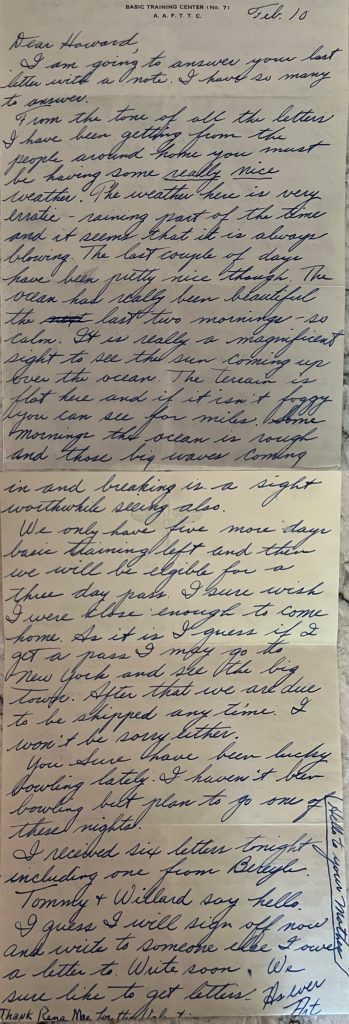 BASIC TRAINING CENTER (No. 7)
A. A. F. T. T. C.
Feb. 10
Dear Howard,
I am going to answer your last
letter with a note. I have so many
to answer.
From the tone of all the letters
I have been getting from the
people around home you must
be having some really nice
weather. The weather here is very
erratic - raining part of the time
and it seems that it is always
blowing. The last couple of days
have been pretty nice though. The
ocean has really been beautiful
the last two mornings - so
calm. It is really a magnificent
sight to see the sun coming up
over the ocean. The terrain is
flat here and if it isn't foggy
you can see for miles. Some
mornings the ocean is rough
and those big waves coming
in and breaking is a sight
worthwhile seeing also.
We only have five more days
basic training left and then
we will be elgible for a
three day pass. I sure wish
I were close enough to come
home. As it is I guess if I
get a pass I may go to
New York and see the big
town. After that we are due
to be shipped any time. I
won't be sorry either.
You sure have been lucky
bowling lately. I haven't been
bowling but plan to go one of
these nights.
I received six letters tonight
including one from
Tommy & Willard say hello.
I guess I will sign off now
and write to someone else I owe
a letter to. Write soon. We
sure like to get letters. As ever
Art
Hello to your Mother
Thank Rena Mae for the